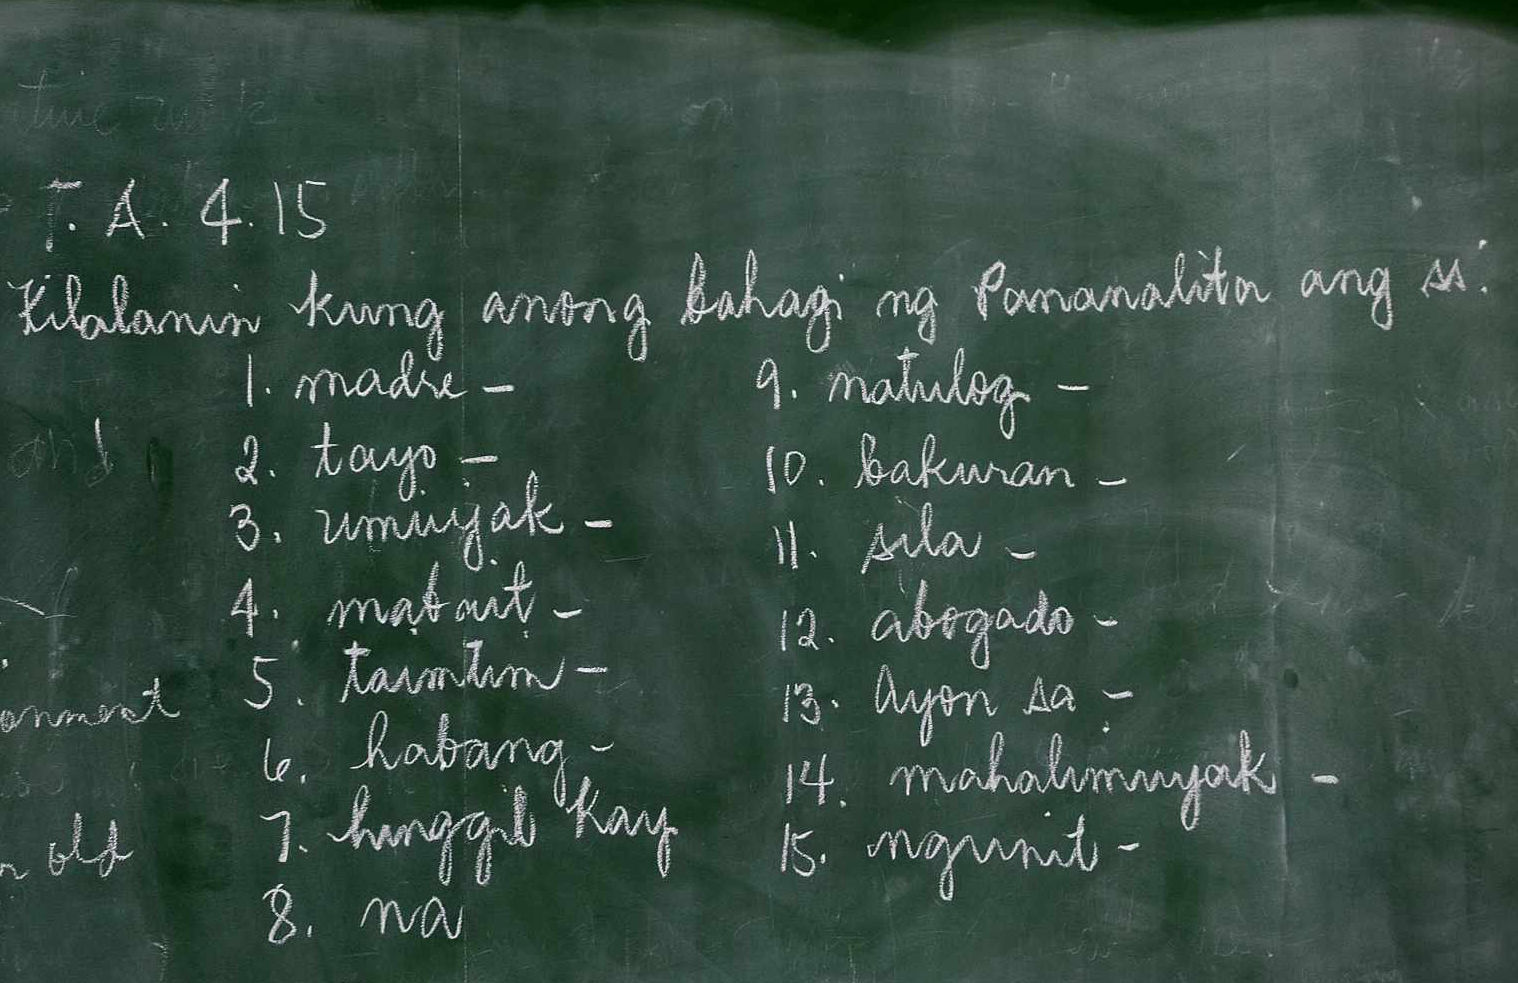 T. A. 4.15
Kilalanin kung anong bahagi ng Pananalita ang ss:
1. madre -
2. tayo -
3. umiiyak -
4. mabait -
5. taimtim -
6. habang -
7. hinggil kay
8. na
9. natulog -
10. bakuran -
11. sila -
12. abogado -
13. Ayon sa -
14. mahalimuyak -
15. ngunit -
and
old